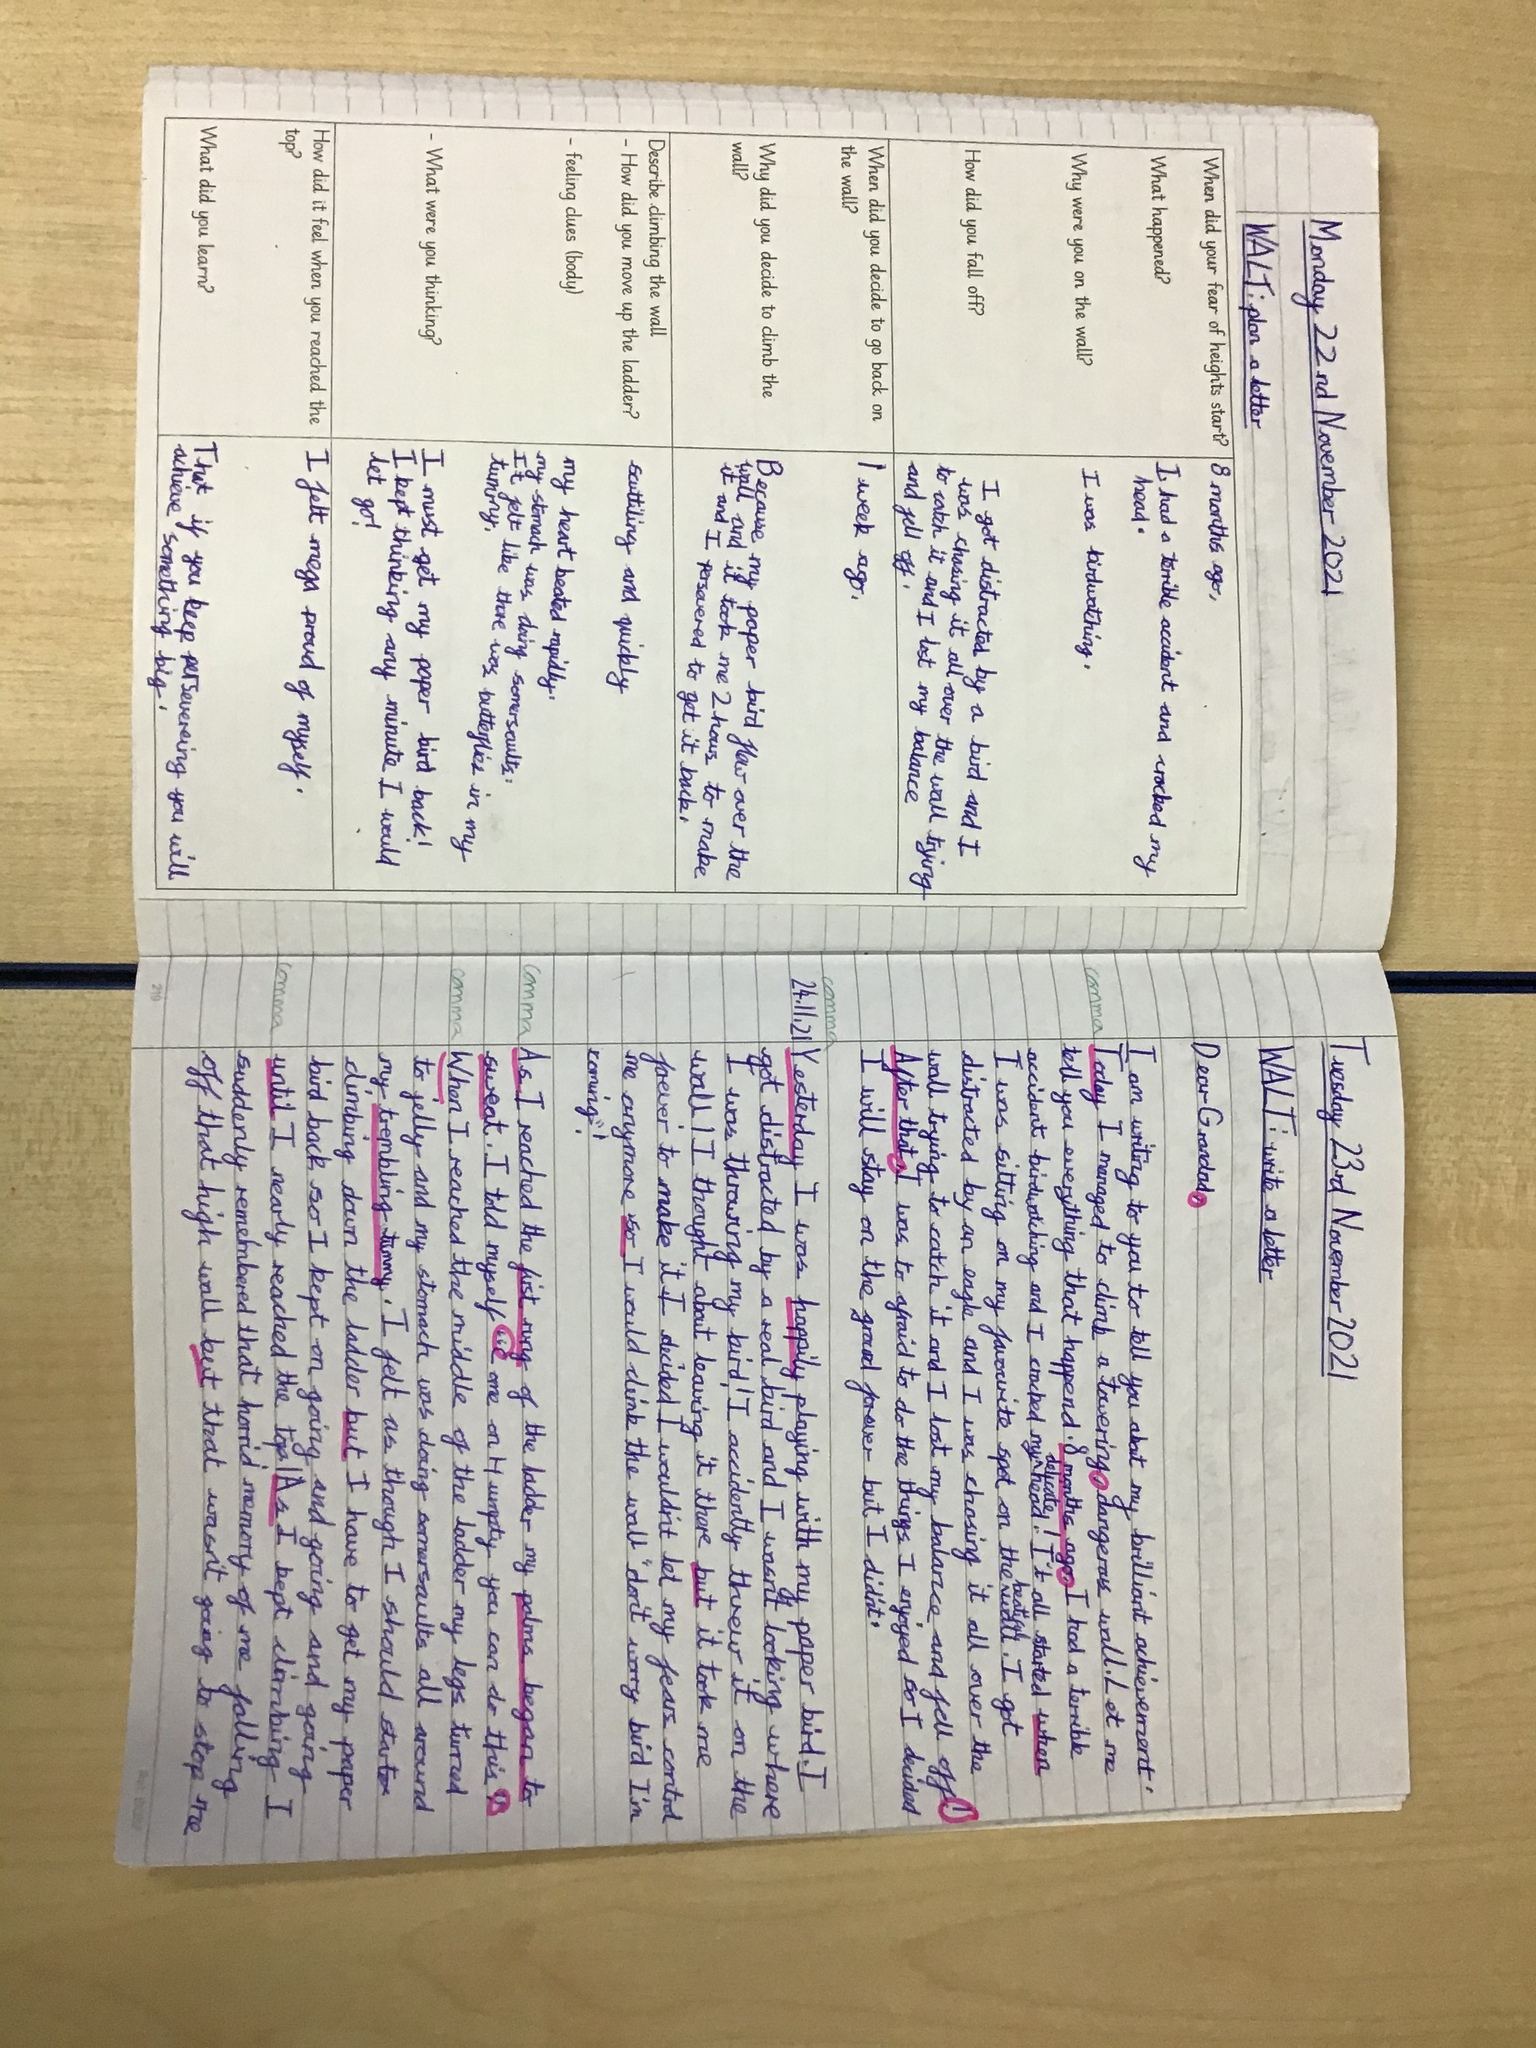 Monday 22nd November 2021
WALT: plan a letter
When did your fear of heights start?
8 months ago,
What happened?
I had a terrible accident and cracked my
head.
Why were you on the wall?
I was birdwatching.
How did you fall off?
I got distracted by a bird and I
was chasing it all over the wall trying
to catch it and I lost my balance
and fell off.
When did you decide to go back on
the wall?
1 week ago.
Why did you decide to climb the
wall?
Because my paper bird flew over the
wall and it took me 2 hours to make
it and I persevered to get it back.
Describe climbing the wall
- How did you move up the ladder?
scuttiling and quickly
- feeling clues (body)
my heart beated rapidly.
my stomach was doing somersaults.
It felt like there was butterflies in my
tummy.
- What were you thinking?
I must get my paper bird back!
I kept thinking any minute I would
let go!
How did it feel when you reached the
top?
I felt mega proud of myself.
What did you learn?
That if you keep persevereing you will
achieve something big.
Tuesday 23rd November 2021
WALT: write a letter
Dear Grandad,
I am writing to you to tell you about my brilliant achievement.
comma
Today I managed to climb a towering, dangerous wall. Let me
tell you everything that happend. 8 months ago, I had a terrible
accident birdwatching and I cracked my delicate head! It all started when
I was sitting on my favourite spot on the beatiful wall. I got
distracted by an eagle and I was chasing it all over the
wall trying to catch it and I lost my balance and fell off!
After that, I was to afraid to do the things I enjoyed so I decided
I will stay on the grond forever but I didn't.
comma
24.11.21
Yesterday I was happily playing with my paper bird. I
got distracted by a real bird and I wasn't looking where
I was throwing my bird! I accidently threw it on the
wall! I thought about leaving it there but it took me
forever to make it I decided I wouldn't let my fears control
me anymore so I would climb the wall "don't worry bird I'm
coming"!
comma
As I reached the first rung of the ladder my palms began to
sweat. I told myself " come on Humpty you can do this"
comma
When I reached the middle of the ladder my legs turned
to jelly and my stomach was doing somersaults all around
my trembling tummy. I felt as though I should start
climbing down the ladder but I have to get my paper
bird back so I kept on going and going and going
comma
until I nearly reached the top! As I kept climbing I
suddenly remembered that horrid memory of me falling
off that high wall but that wasn't going to stop me
210